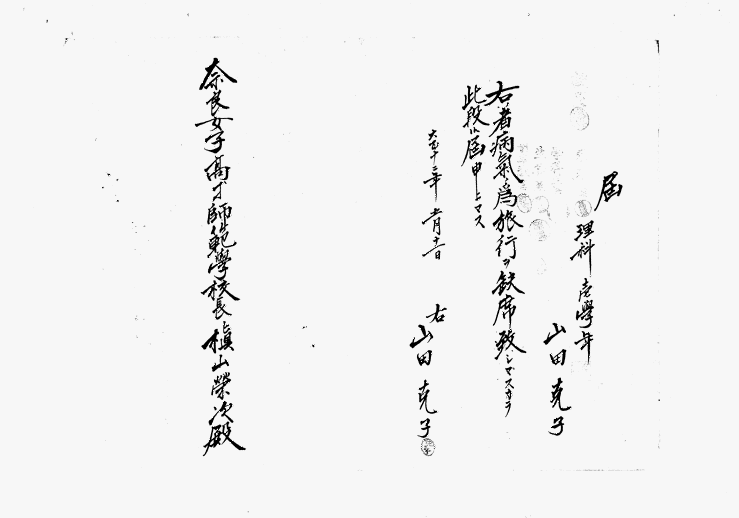 届
理科壱學年
山田克子
右者病氣ノ為旅行ヲ缺席致シマスカラ
此段御届申上マス
大正十三年 月 日
右
山田克子
奈良女子高才師範學校長 槙山榮次殿